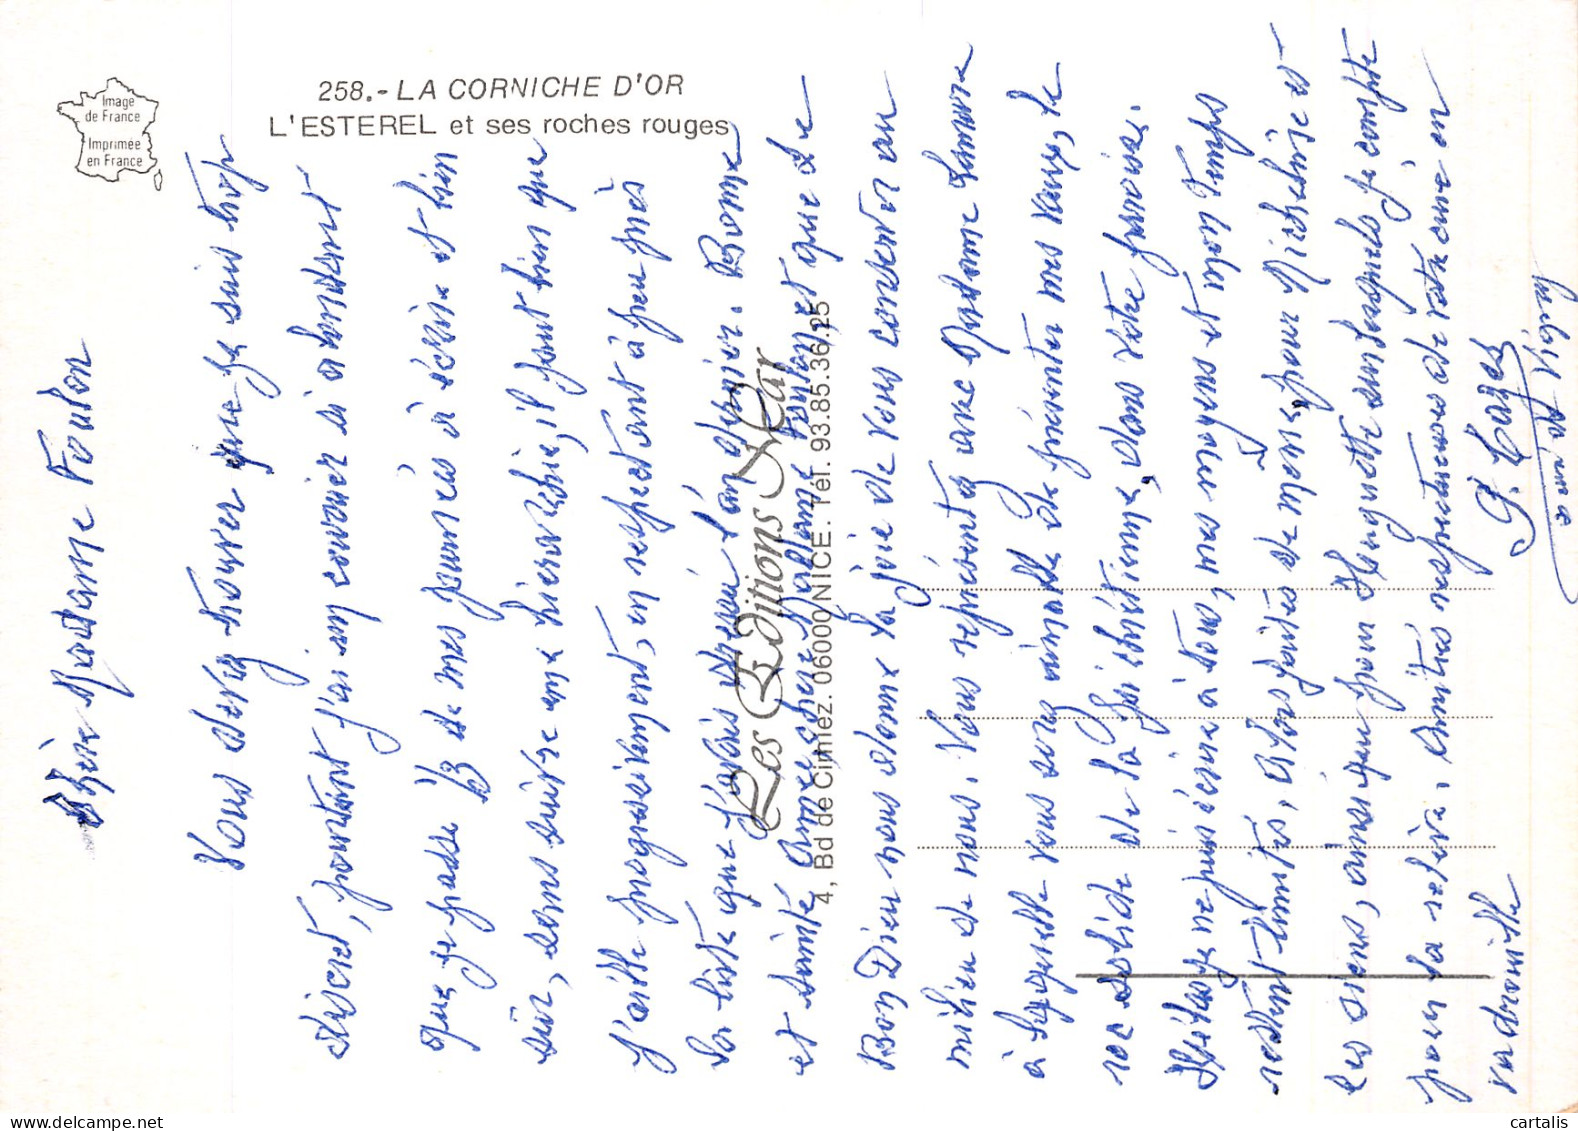 258.- LA CORNICHE D'OR
L'ESTEREL et ses roches rouges
Image
de France
Imprimée
en France
Les Editions Mar
4, Bd de Cimiez. 06000 NICE. Tél. 93.85.36.25
Chère Madame Foulon
Vous devez trouver que je suis trop
discret, pourtant j'ai un courrier si abondant
que je passe 1/3 de mes journées à écrire et bien
sûr, sans suivre une hiérarchie, il faut bien que
j'aille progressivement, en respectant à peu près
la liste que j'avais l'an dernier. Bonne
et sainte Année chère Madame Foulon et que le
Bon Dieu nous donne la joie de vous conserver au
milieu de nous. Vous représentez avec Madame
à laquelle vous serez aimable de présenter mes vœux, le
roc solide de la foi chrétienne, dans votre paroisse.
Hélas je ne puis écrire à tous, mes moyens et mon temps
restant limités, alors faites de même, pour Micheline et
les siens, ainsi que pour Huguette sur lesquels je compte
pour la relève. Amitiés respectueuses de votre curé en